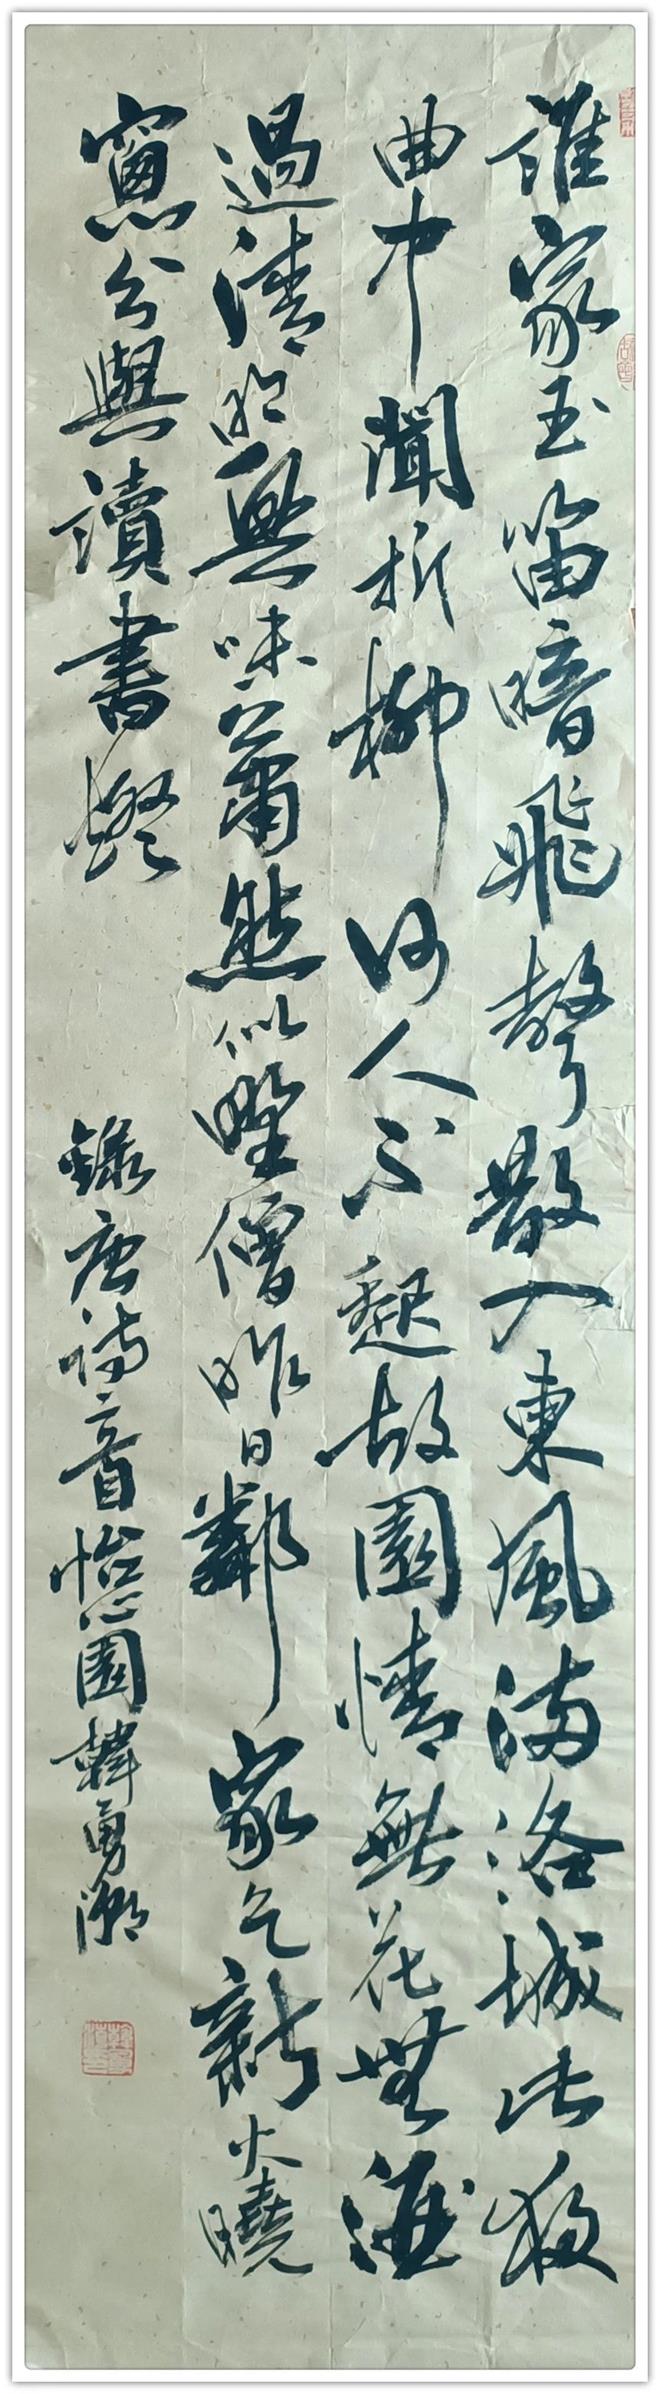 誰家玉笛暗飛聲散入東風滿洛城此夜
曲中聞折柳何人不起故園情無花無酒
過清明興味蕭然似野僧昨日鄰家乞新火曉
窻分與讀書燈
錄唐詩二首怡心園韓勇潮